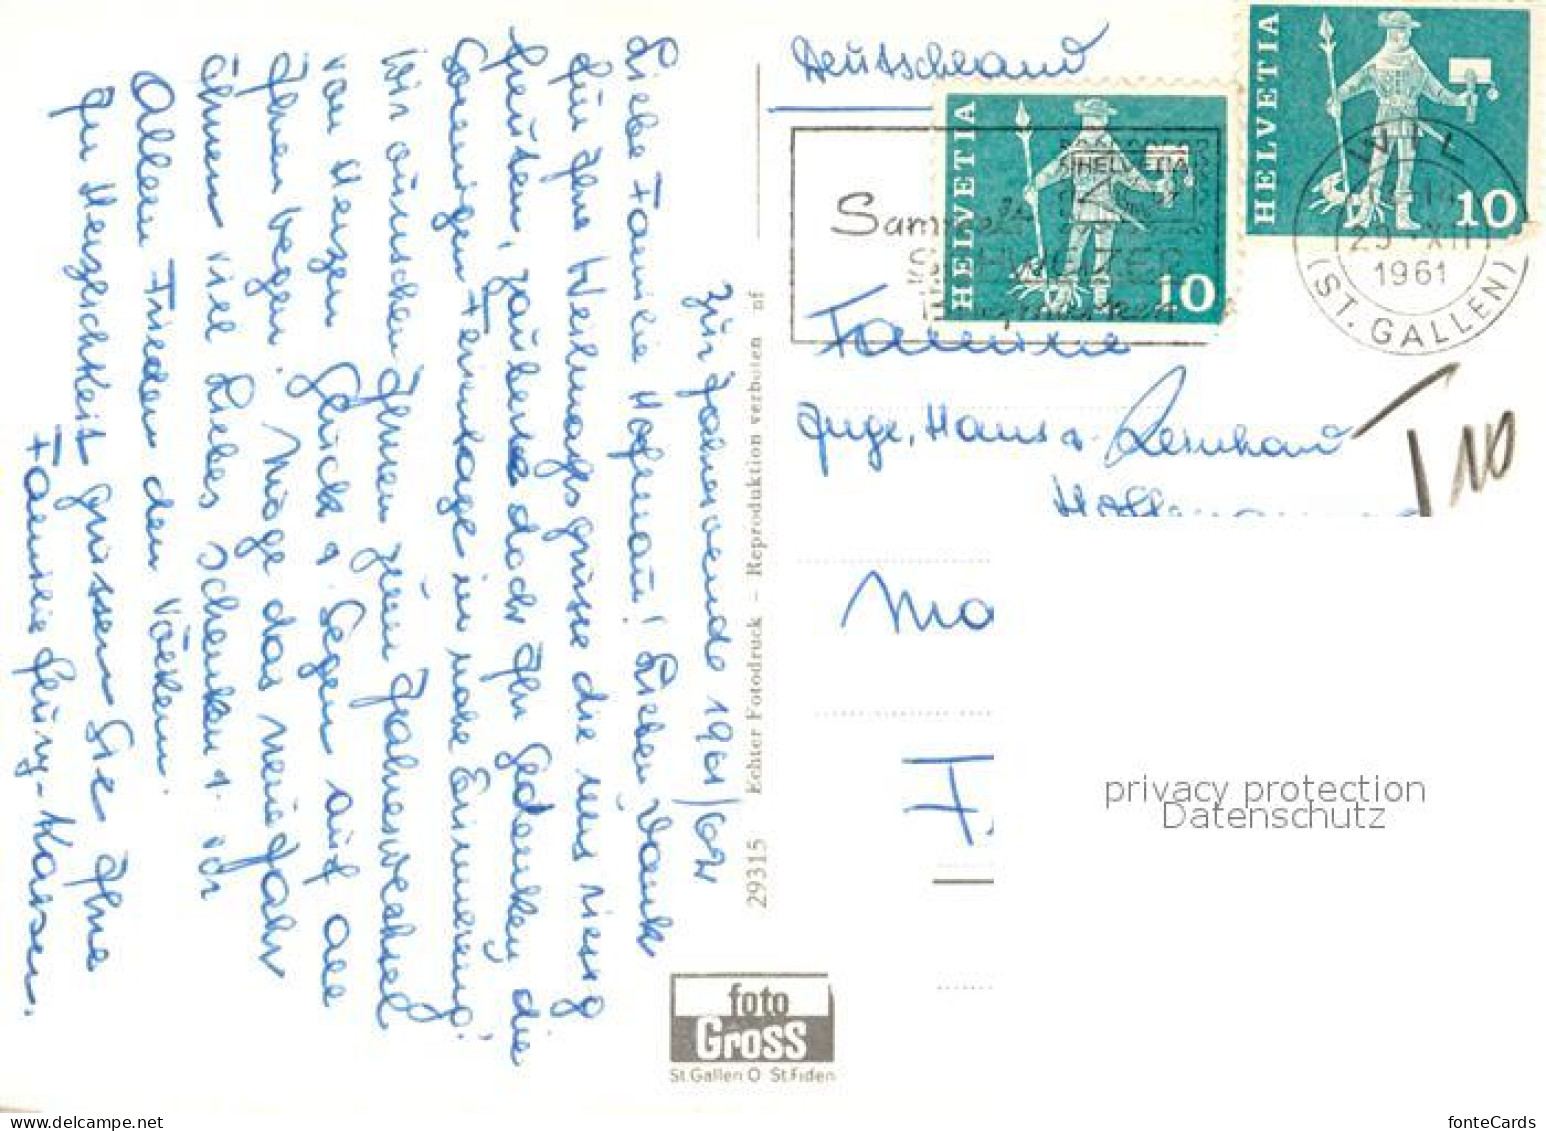 zur Jahreswende 1961/62
Liebe Familie Hofmann! Lieben Dank
für Ihre Weihnachtsgrüsse die uns riesig
freuten, zauberte doch Ihr Gedenken die
sonnigen Ferientage in nahe Erinnerung.
Wir wünschen Ihnen zum Jahreswechsel
von Herzen Glück & Segen auf all
Ihren Wegen. Möge das neue Jahr
Ihnen viel Liebes schenken & vor
Allem Frieden den Völkern.
In Herzlichkeit grüssen Sie Ihre
Familie
29315 Echter Fotodruck – Reproduktion verboten nf
foto
Gross
St.Gallen O St.Fiden
Deutschland
HELVETIA
10
HELVETIA
10
WIL
1961
(ST. GALLEN)
Familie
Inge, Hans &
Hoffmann
T 10
privacy protection
Datenschutz
fonteCards